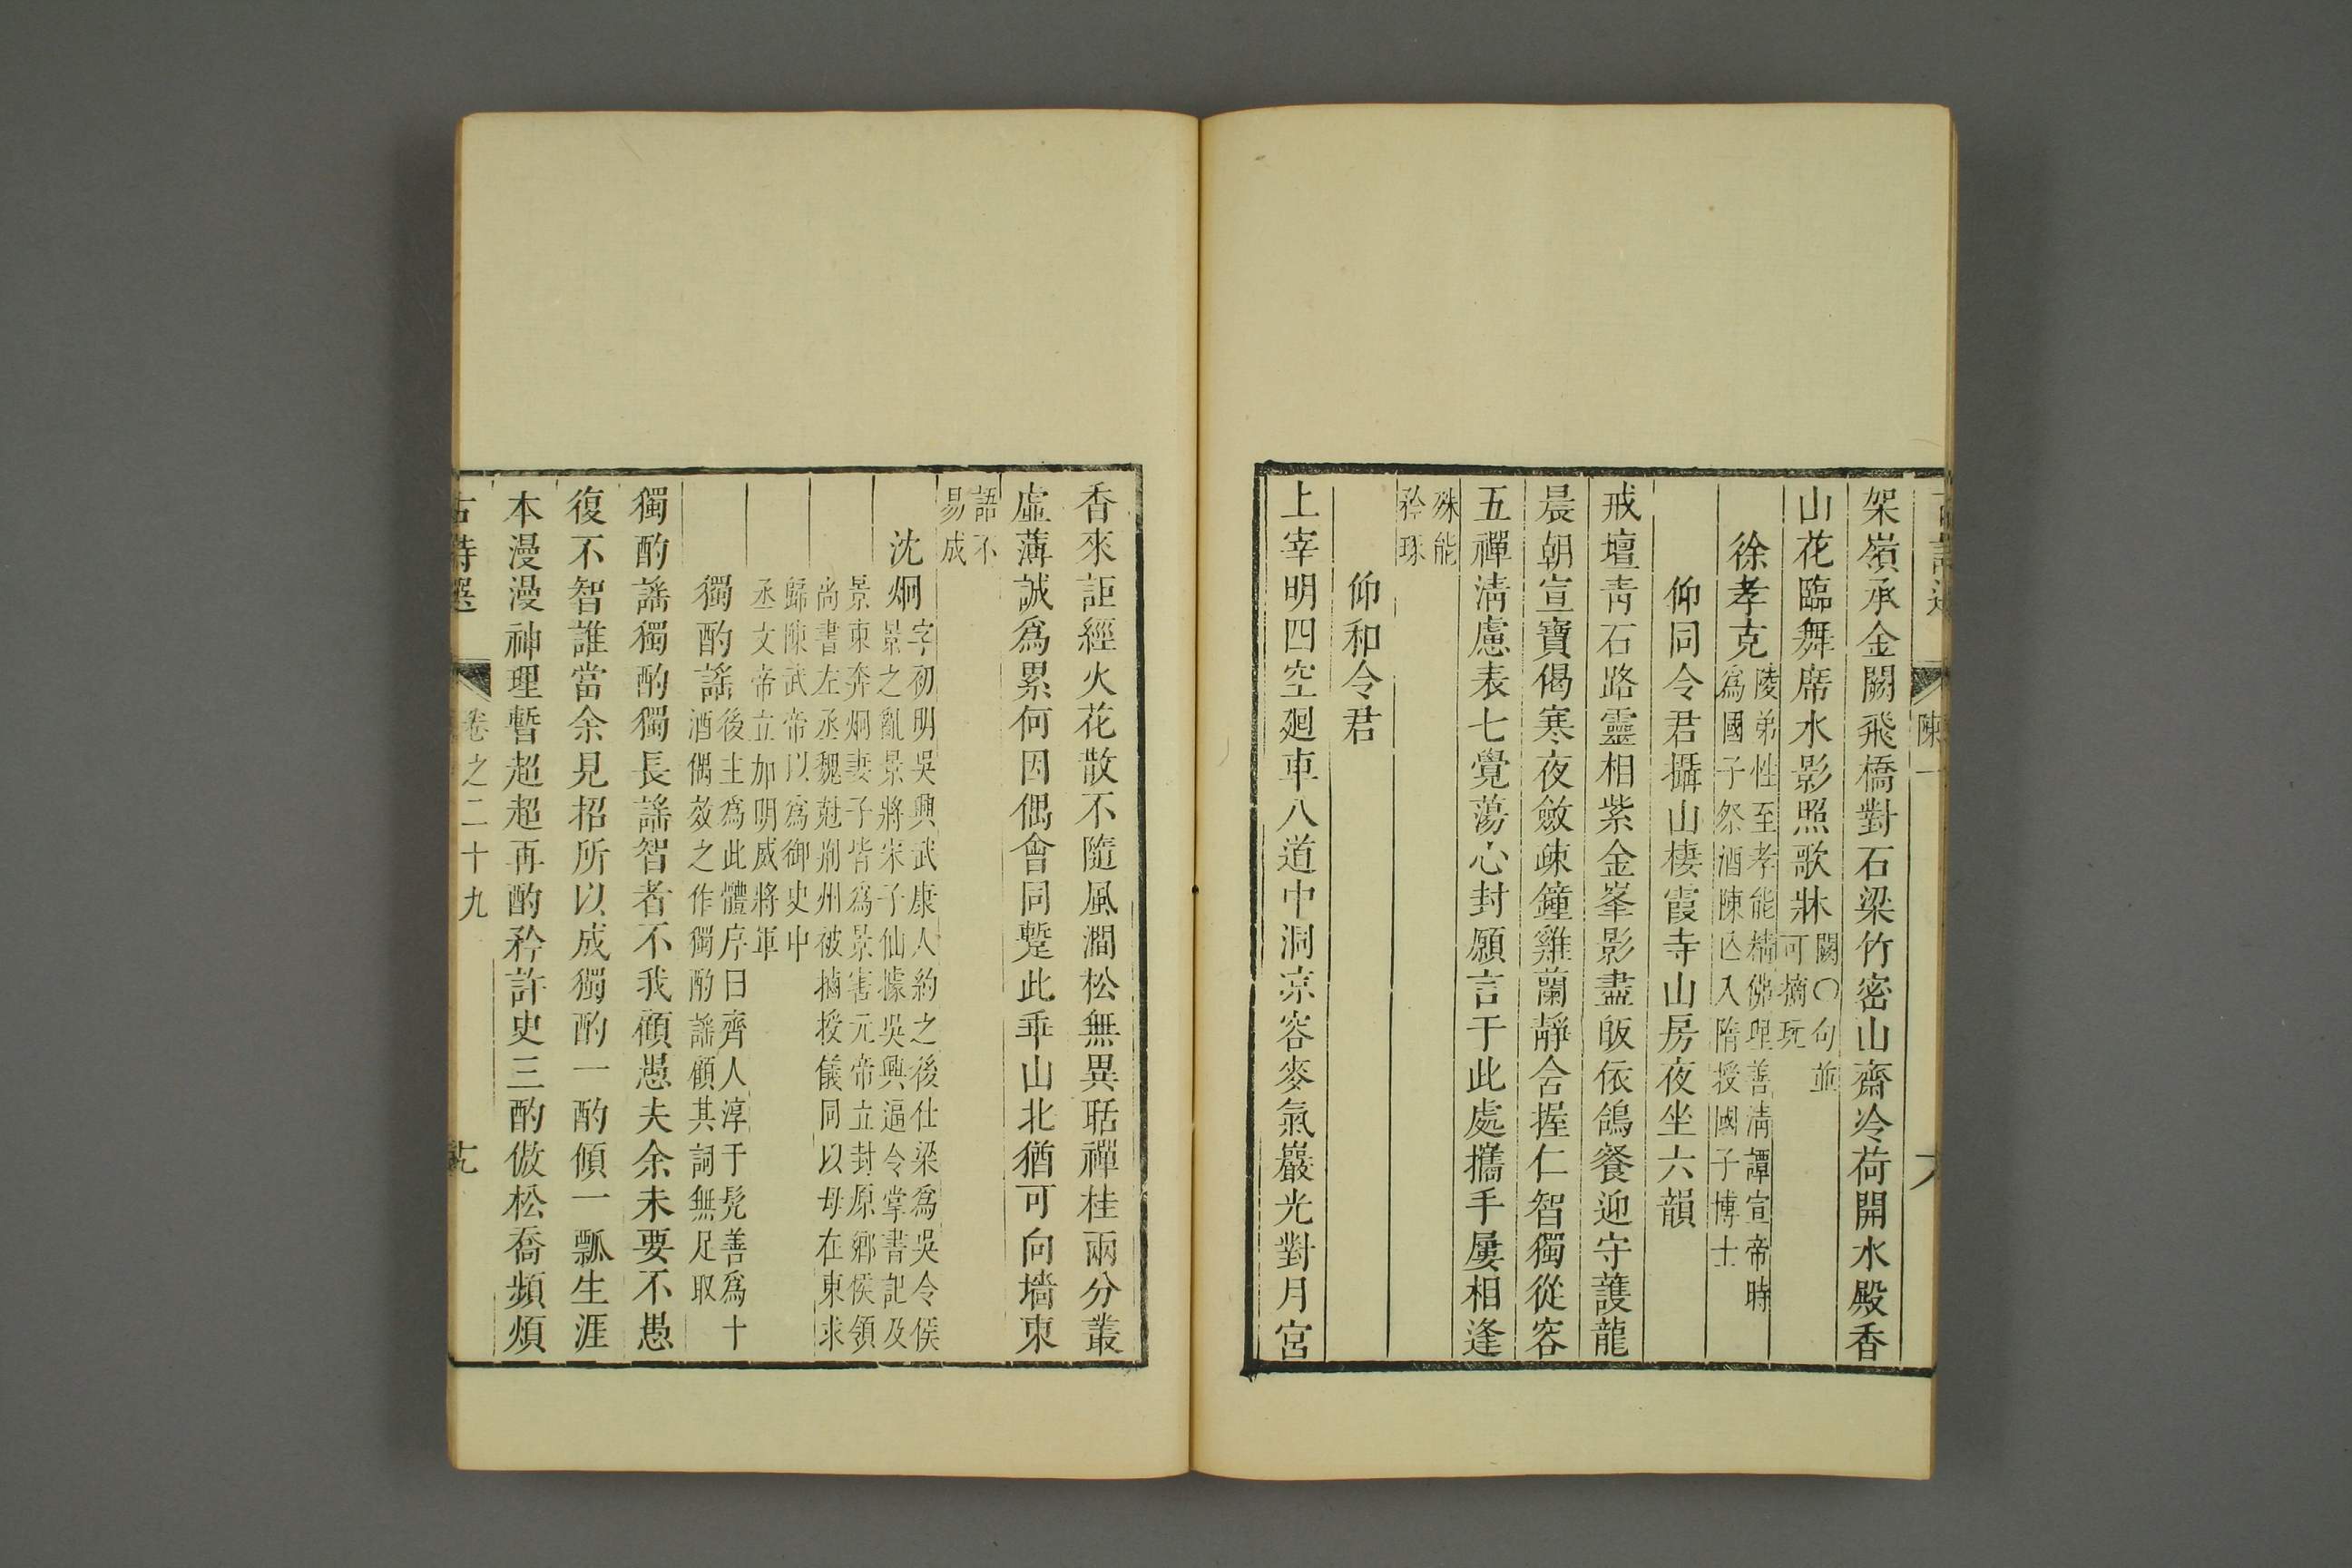 陳一
架嶺承金闕飛橋對石梁竹密山齋冷荷開水殿香
山花臨舞席水影照歌牀闕〇句並
可摘玩
徐孝克陵弟性至孝能精佛理善清譚宣帝時
爲國子祭酒陳亾入隋授國子博士
仰同令君攝山棲霞寺山房夜坐六韻
戒壇靑石路靈相紫金峯影盡皈依鴿餐迎守護龍
晨朝宣寶偈寒夜斂疎鐘雞蘭靜含握仁智獨從容
五禪淸慮表七覺蕩心封願言于此處攜手屢相逢
殊能
矜琢
仰和令君
上宰明四空廻車八道中洞涼容麥氣巖光對月宮
香來詎經火花散不隨風澗松無異聒禪桂兩分叢
虛薄誠爲累何因偶會同蹔此乖山北猶可向墻東
語不
易成
沈炯字初明吳興武康人約之後仕梁爲吳令侯
景之亂景將宋子仙據吳興逼令掌書記及
景東奔炯妻子皆爲景害元帝立封原鄉侯領
尚書左丞魏尅荊州被擄授儀同以母在東求
歸陳武帝以爲御史中
丞文帝立加明威將軍
獨酌謠後主爲此體序曰齊人淳于髡善爲十
酒偶效之作獨酌謠顧其詞無足取
獨酌謠獨酌獨長謠智者不我顧愚夫余未要不愚
復不智誰當余見招所以成獨酌一酌傾一瓢生涯
本漫漫神理暫超超再酌矜許史三酌傲松喬頻煩
古詩選
卷之二十九
十七